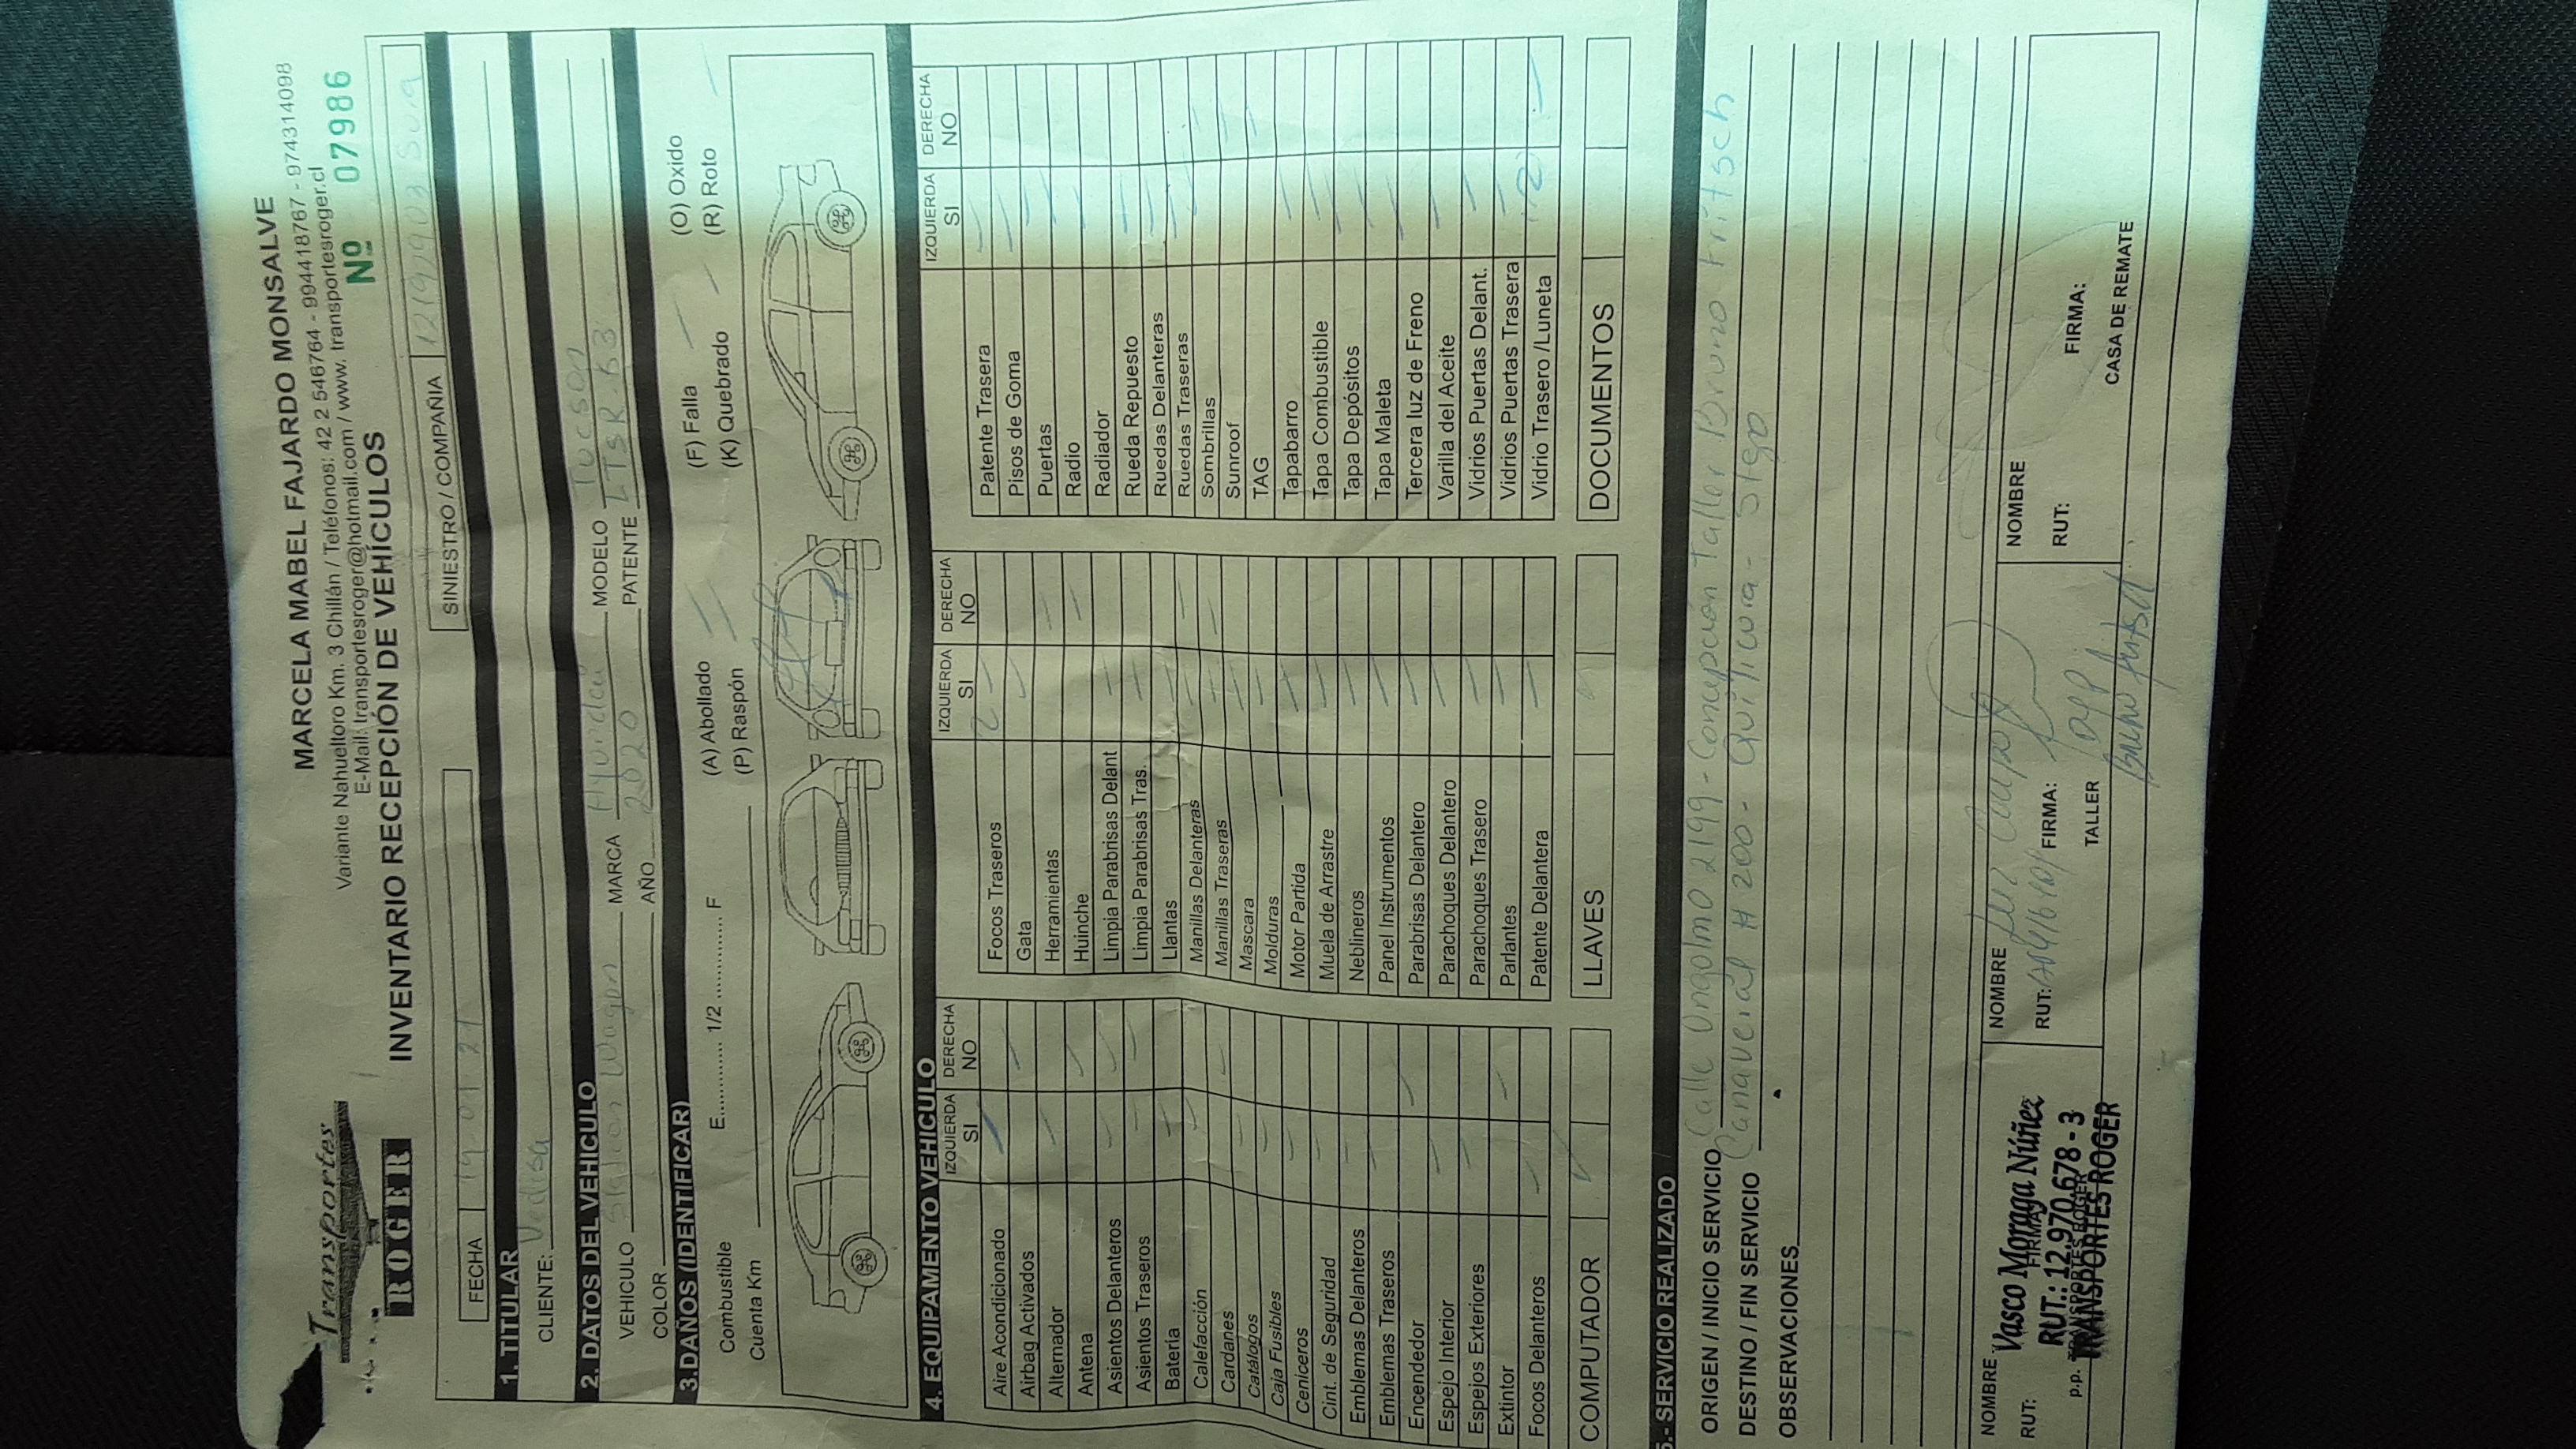 Transportes
ROGER
MARCELA MABEL FAJARDO MONSALVE
Variante Nahueltoro Km. 3 Chillán / Teléfonos: 42 2 546764 - 994418767 - 974314098
E-Mail: transportesroger@hotmail.com / www. transportesroger.cl
INVENTARIO RECEPCIÓN DE VEHÍCULOS
Nº 07986
FECHA 19-01-21
SINIESTRO / COMPAÑIA
1. TITULAR
CLIENTE: Vedisa
2. DATOS DEL VEHICULO
VEHICULO Station Wagon MARCA Hyundai MODELO Tucson
COLOR AÑO 2020 PATENTE LTSR.63
3.DAÑOS (IDENTIFICAR)
Combustible E............ 1/2 ............ F (A) Abollado (F) Falla (O) Oxido
Cuenta Km (P) Raspón (K) Quebrado (R) Roto
4. EQUIPAMENTO VEHICULO
IZQUIERDA SI DERECHA NO
Aire Acondicionado
Airbag Activados
Alternador
Antena
Asientos Delanteros
Asientos Traseros
Batería
Calefacción
Cardanes
Catálogos
Caja Fusibles
Ceniceros
Cint. de Seguridad
Emblemas Delanteros
Emblemas Traseros
Encendedor
Espejo Interior
Espejos Exteriores
Extintor
Focos Delanteros
IZQUIERDA SI DERECHA NO
Focos Traseros 2
Gata
Herramientas
Huinche
Limpia Parabrisas Delant
Limpia Parabrisas Tras.
Llantas
Manillas Delanteras
Manillas Traseras
Mascara
Molduras
Motor Partida
Muela de Arrastre
Neblineros
Panel Instrumentos
Parabrisas Delantero
Parachoques Delantero
Parachoques Trasero
Parlantes
Patente Delantera
IZQUIERDA SI DERECHA NO
Patente Trasera
Pisos de Goma
Puertas
Radio
Radiador
Rueda Repuesto
Ruedas Delanteras
Ruedas Traseras
Sombrillas
Sunroof
TAG
Tapabarro
Tapa Combustible
Tapa Depósitos
Tapa Maleta
Tercera luz de Freno
Varilla del Aceite
Vidrios Puertas Delant.
Vidrios Puertas Trasera
Vidrio Trasero /Luneta
COMPUTADOR
LLAVES
DOCUMENTOS
5.- SERVICIO REALIZADO
ORIGEN / INICIO SERVICIO Calle Ongolmo 2199 - Concepción Taller Bruno Fritsch
DESTINO / FIN SERVICIO Cañaveral # 200 - Quilicura - Stgo
OBSERVACIONES
NOMBRE Vasco Moraga Núñez
RUT: RUT.: 12.970.678 - 3
FIRMA
p.p. TRANSPORTES ROGER
TRANSPORTES ROGER
NOMBRE
RUT:
FIRMA:
TALLER
Bruno Fritsch
NOMBRE
RUT:
FIRMA:
CASA DE REMATE